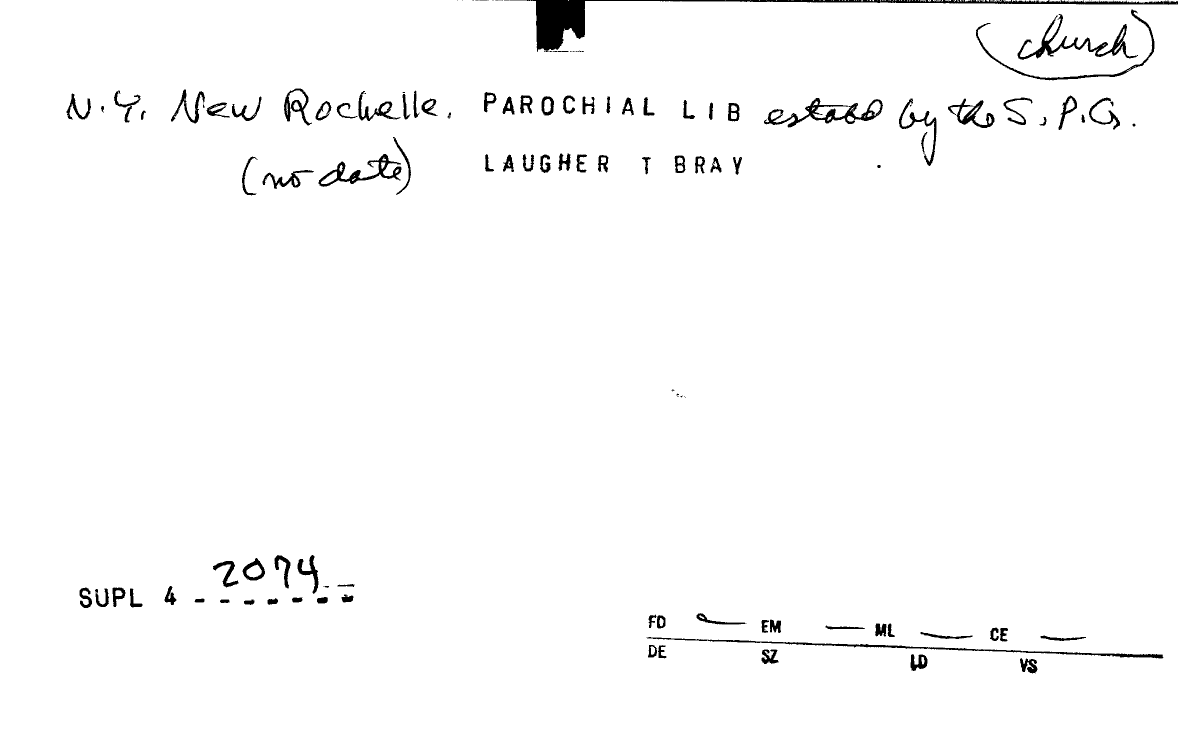 (church)
N.Y. New Rochelle. PAROCHIAL LIB estabd by the S.P.G.
(no date) LAUGHER T BRAY
SUPL 4 2074
FD EM ML CE
DE SZ LD VS